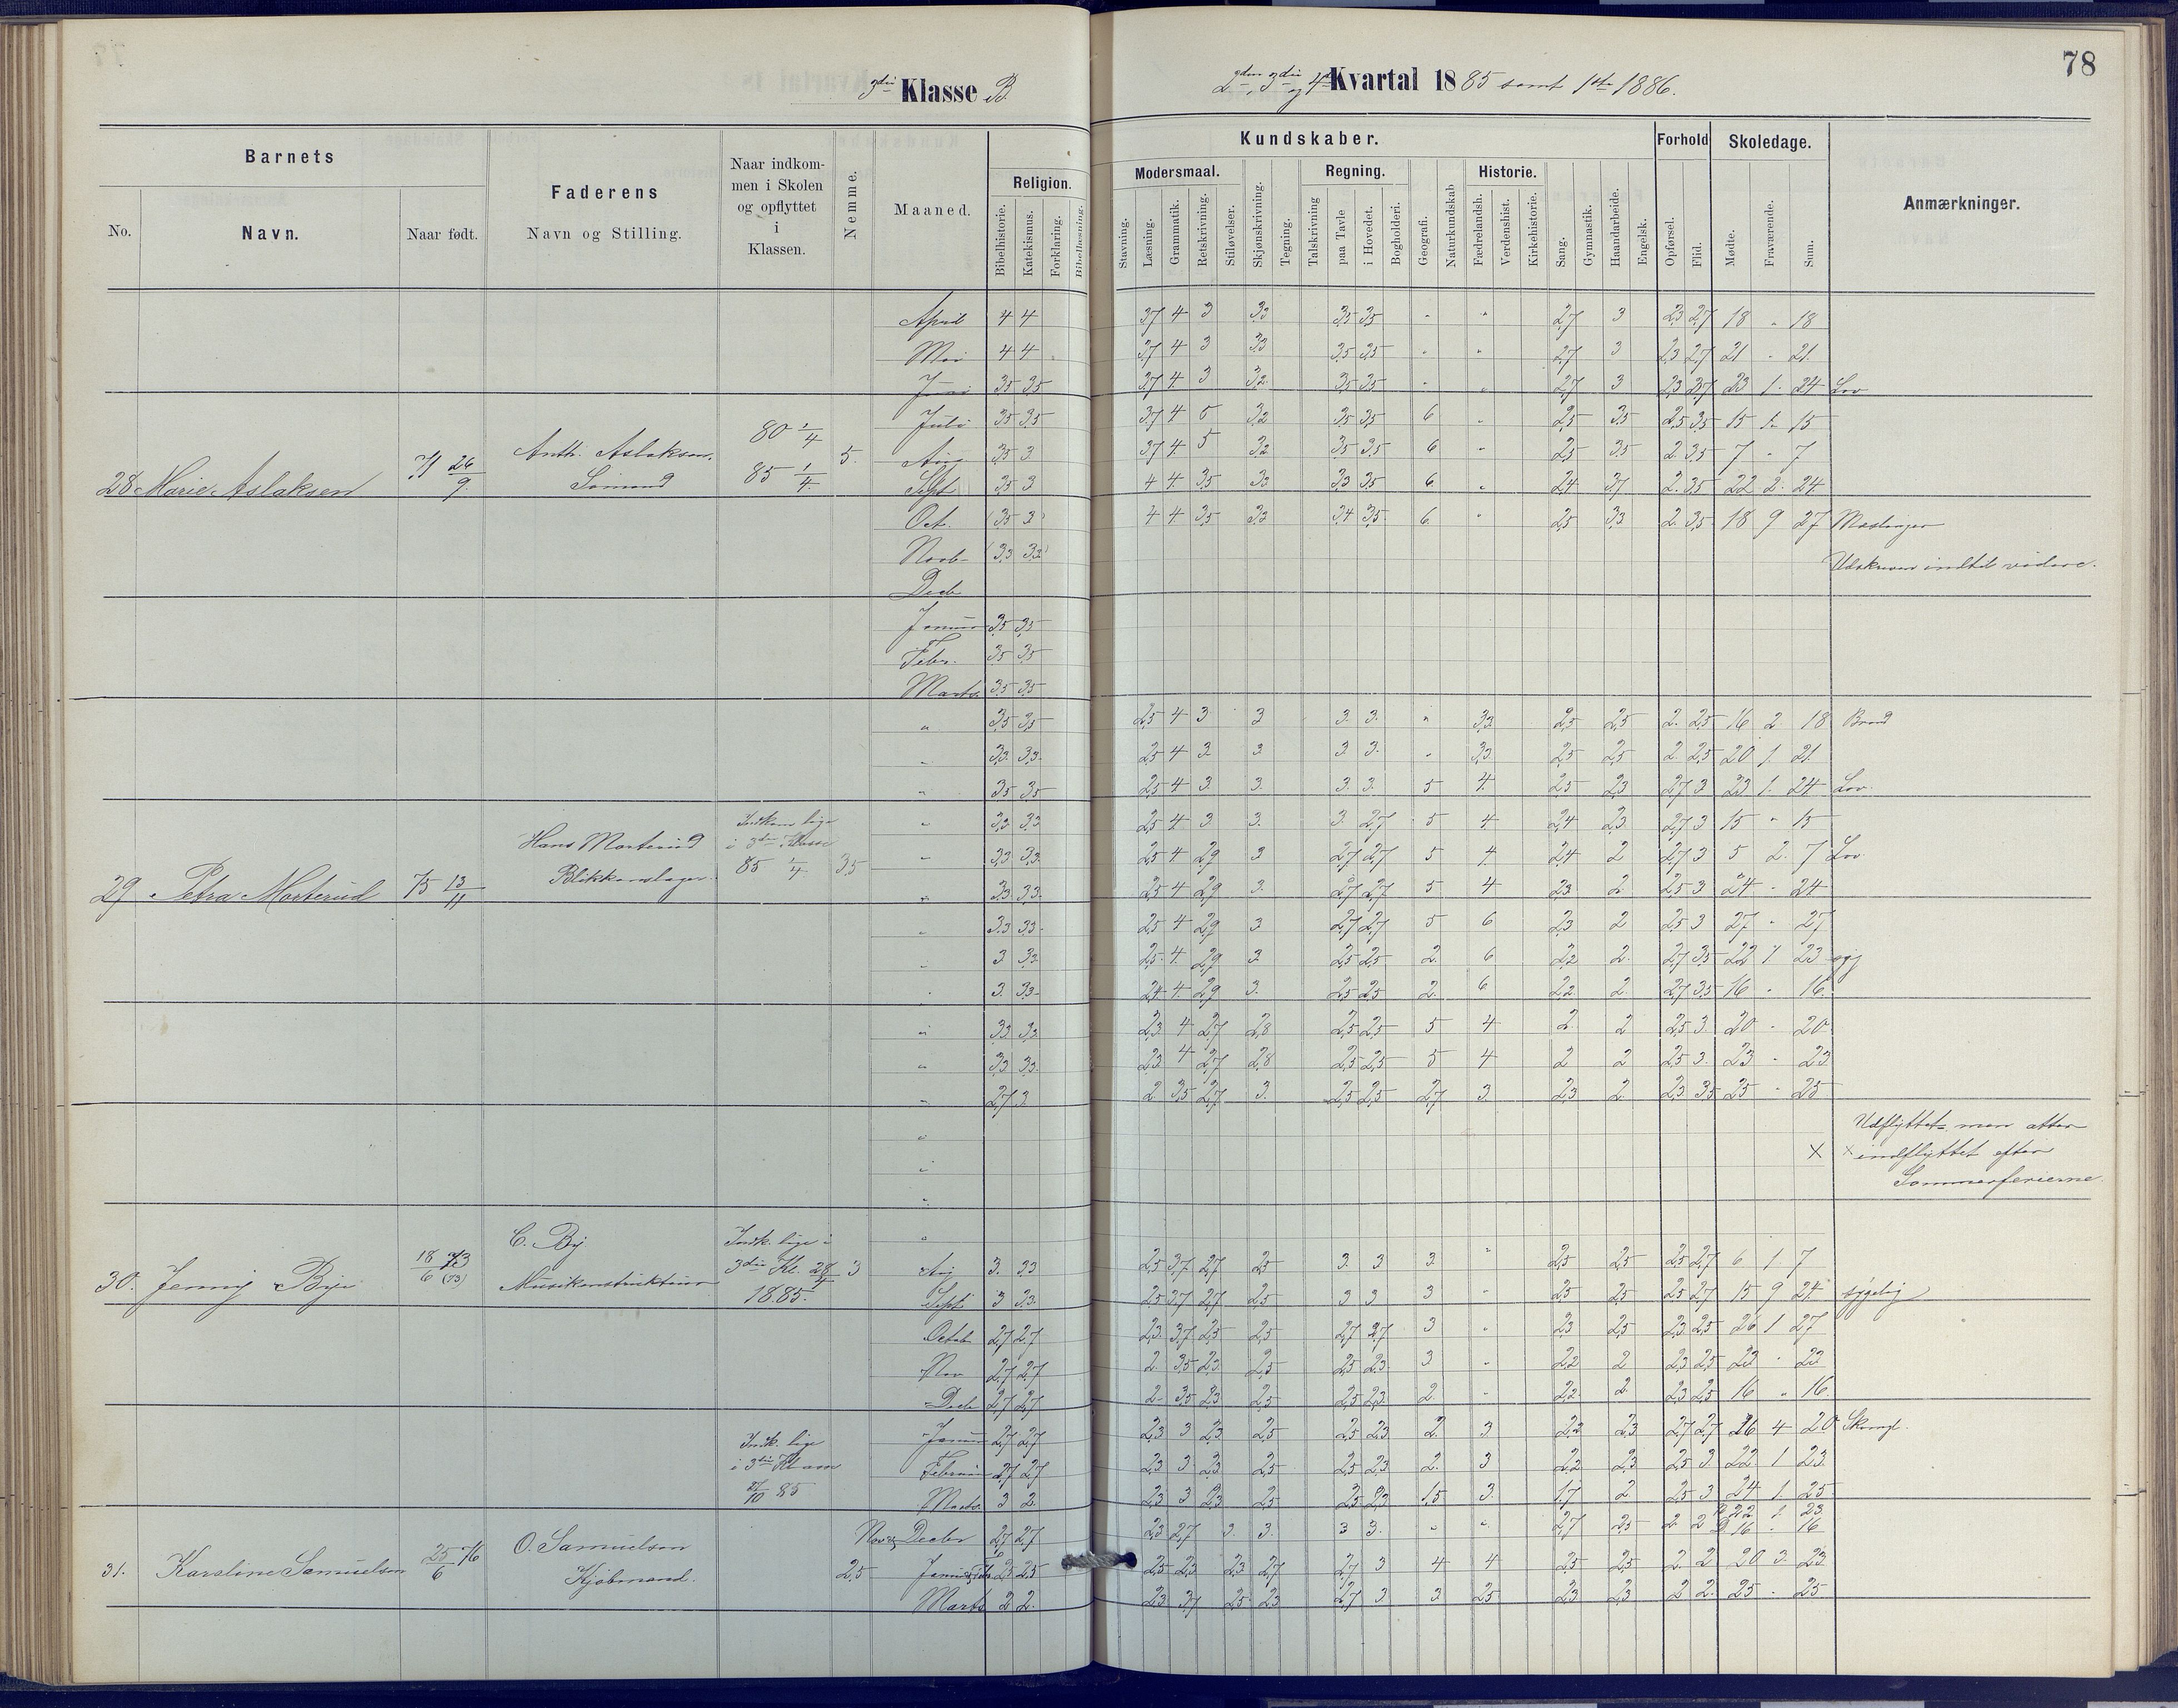 78
3die Klasse B
2den, 3die og 4de Kvartal 1885 samt 1ste 1886.
Barnets
No.
Navn.
Naar født.
Faderens
Navn og Stilling.
Naar indkom-
men i Skolen
og opflyttet
i
Klassen.
Nemme.
Maaned.
Religion.
Bibelhistorie.
Katekismus.
Forklaring.
Bibellæsning.
Kundskaber.
Modersmaal.
Stavning.
Læsning.
Grammatik.
Retskrivning.
Stiløvelser.
Skjønskrivning.
Tegning.
Regning.
Talskrivning
paa Tavle
i Hovedet.
Bogholderi.
Geografi.
Naturkundskab
Historie.
Fædrelandsh.
Verdenshist.
Kirkehistorie.
Sang.
Gymnastik.
Haandarbeide.
Engelsk.
Forhold
Opførsel.
Flid.
Skoledage.
Mødte.
Fraværende.
Sum.
Anmærkninger.
April 4 4 3,7 4 3 3,3 3,5 3,5 " " 2,7 3 2,3 2,7 18 " 18
Mai 4 4 3,7 4 3 3,3 3,5 3,5 " " 2,7 3 2,3 2,7 21 " 21
Juni 3,5 3,5 3,7 4 3 3,2 3,5 3,5 " " 2,7 3 2,3 2,7 23 1 24 Lov
Juli 3,5 3,5 3,7 4 5 3,2 3,5 3,5 6 " 2,5 3,5 2,5 3,5 15 15
Aug 3,5 3 3,7 4 5 3,2 3,5 3,5 6 " 2,5 3,5 2 3,5 7 " 7
28 Marie Aslaksen 71 26/9 Anth. Aslaksen. Sømand 80 1/4 85 1/4 5.
Sept 3,5 3 4 4 3,5 3,3 3,3 3,5 6 " 2,4 3,7 2 3,5 22 2 24
Oct. (3,5 3) 4 4 3,5 3,3 3,4 3,5 6 " 2,5 3,3 2 3,5 18 9 27 Mæslinger
Novb (3,3 3,3) Udskreven indtil videre.
Decb
Januar 3,5 3,5
Febr. 3,5 3,5
Marts 3,5 3,5
" 3,5 3,5 2,5 4 3 3 3 3 " 3,3 2,5 2,5 2 2,5 16 2 18
" 3,3 3,3 2,5 4 3 3 3 3 " 3,3 2,5 2,5 2 2,5 20 1 21
" 3,5 3,5 2,5 4 3 3 3 3 5 4 2,5 2,3 2,7 3 23 1 24 Lov.
" 3,3 3,3 2,5 4 3 3 3 2,7 5 4 2,4 2,3 2,7 3 15 " 15
" 3,3 3,3 2,5 4 2,9 3 2,7 2,7 5 4 2,4 2 2,7 3 5 2 7 Lov
29 Petra Morterud 75 13/11 Hans Morterud Blikkenslager. Indkom lige i 3die Klasse 85 1/4 3,5
" 3,3 3,3 2,5 4 2,9 3 2,7 2,7 5 4 2,3 2 2,5 3 24 " 24
" 3,3 3,3 2,5 4 2,9 3 2,7 2,7 5 6 2,3 2 2,5 3 27 " 27
" 3 3,3 2,5 4 2,9 3 2,5 2,5 2 6 2,2 2 2,7 3,5 22 1 23 syg
" 3 3,3 2,4 4 2,9 3 2,5 2,5 2 6 2,2 2 2,7 3,5 16 " 16
" 3,3 3,3 2,3 4 2,7 2,8 2,5 2,5 5 4 2 2 2,5 3 20 " 20
" 3,3 3,3 2,3 4 2,7 2,8 2,5 2,5 5 4 2 2 2,5 3 23 " 23
" 2,7 3 2 3,5 2,7 3 2,5 2,5 2,7 3 2,3 2 2,3 3,5 25 " 25
" Udflyttet men atter
" × × indflyttet efter
" Sommerferierne.
"
30. Jenny Bye 18/6 73 (73) C. By Musikinstrukteur Indk. lige i 3die Kl. 28/4 1885. 3
Aug 3 3,3 2,5 3,7 2,7 2,5 3 3 3 " 2,5 2,5 2,5 2,7 6 1 7
Sept 3 3,3 2,5 3,7 2,7 2,5 3 3 3 " 2,5 2,5 2,5 2,7 15 9 24 sygelig
Octob 2,7 2,7 2,3 3,7 2,5 2,5 2,7 2,7 3 " 2,3 2,5 2,3 2,5 26 1 27
Nov 2,7 2,7 2 3,5 2,3 2,5 2,5 2,3 3 " 2,2 2 2,3 2,5 23 " 23
Decb 2,7 2,7 2 3,5 2,3 2,5 2,5 2,3 2 " 2,2 2 2,3 2,5 16 " 16
Januar 2,7 2,7 2,3 3 2,3 2,5 2,5 2,3 2 3 2,2 2,3 2,7 2,7 16 4 20
Februar 2,7 2,7 2,3 3 2,3 2,5 2,5 2,3 2 3 2,2 2,3 2,5 3 22 1 23
Marts 3 2 2,3 3 2,3 2,5 2,5 2,3 1,5 3 1,7 2 2,5 3 24 1 25
31. Karoline Samuelsen 25/6 76 O. Samuelsen Kjøbmand. Indk. lige i 3die Kl am 85 2,5
Nov & Decbr 2,7 2,7 2,3 2,7 3 3 3 3 " " 2,7 2,5 2 2 22 1 23 16 " 16
Januar & Feb 2,5 2,5 2,5 2,3 2,3 2,7 2,7 3 4 4 2,5 2,5 2 2 20 3 23
Marts 2 2 2,3 3,7 2,5 2,3 2,7 3 3 2,5 2,3 2,3 2 2 25 " 25